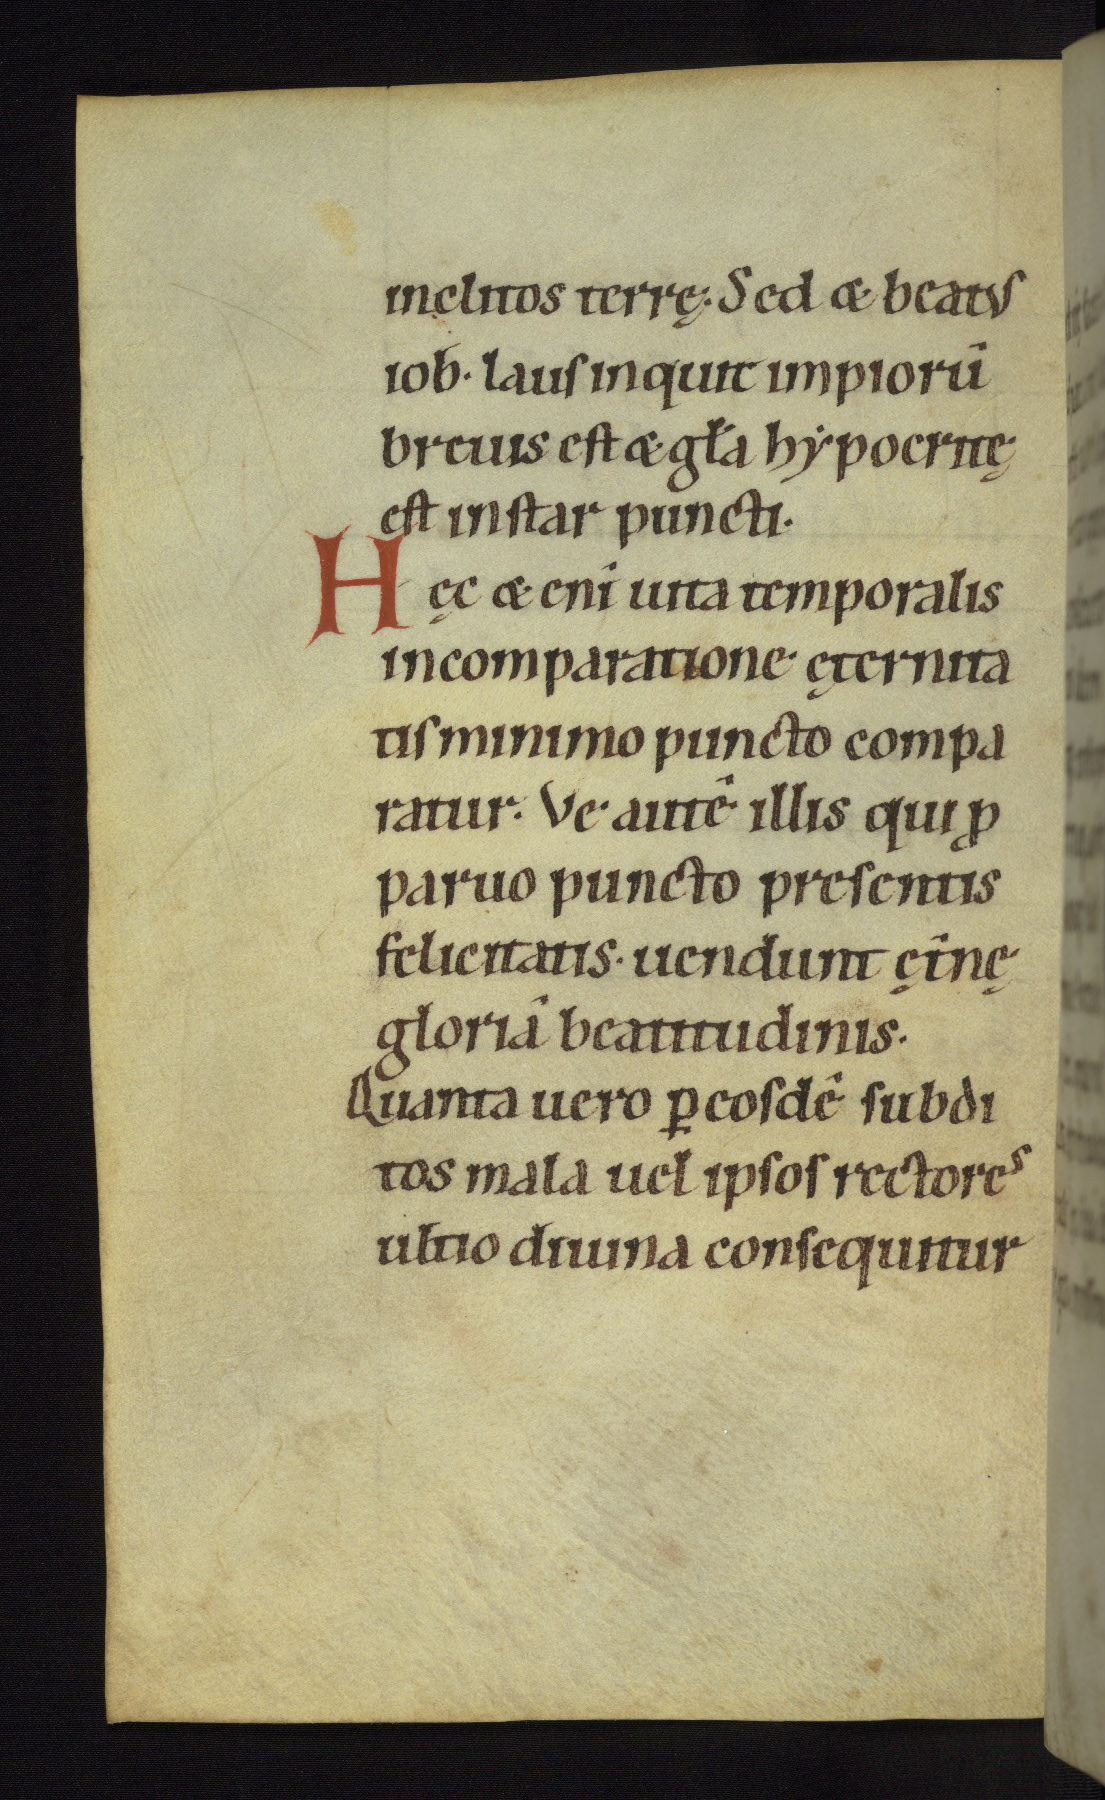 inclitos terrę. Sed & beatus
iob. laus inquit impiorū
breuis est & gła hẏpocritę
est instar puncti.
Hęc & eni̅ uita temporalis
in comparatione ęternita
tis minimo puncto compa
ratur. Ve autē illis qui ꝓ
paruo puncto presentis
felicitatis. uendunt ęt̅nę
gloriā beatitudinis.
Quanta uero ꝑ eosdē subdi
tos mala uel ipsos rectores
ultio diuina consequitur